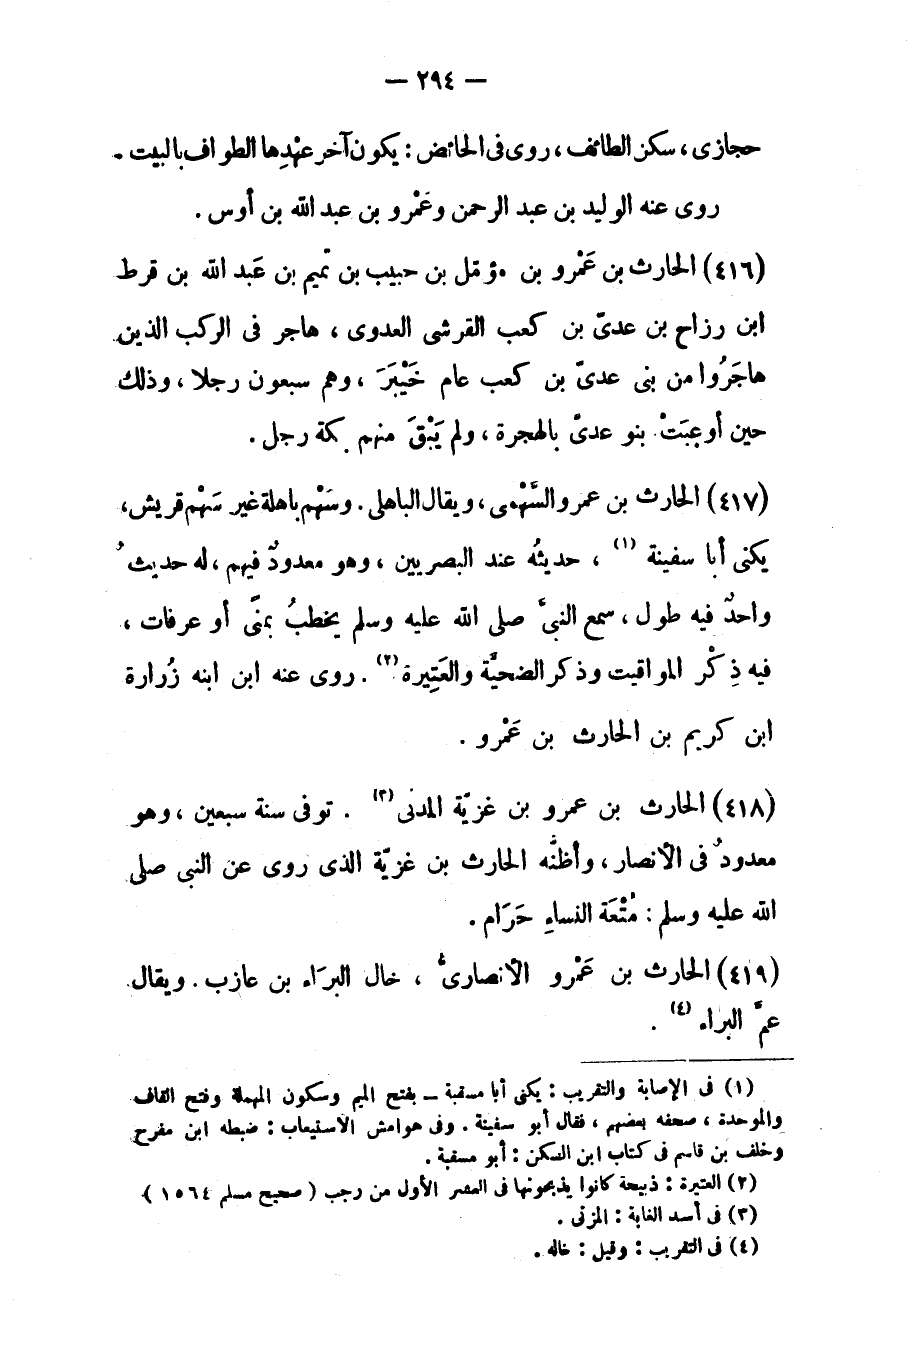 — ٢٩٤ —
حجازى ، سكن الطائف ، روى فى الحائض : يكون آخر عهْدِها الطواف بالبيت .
روى عنه الوليد بن عبد الرحمن وعَمْرو بن عبد الله بن أوس .
(٤١٦) الحارث بن عَمْرو بن مؤمّل بن حبيب بن تميم بن عَبد الله بن قرط
ابن رزاح بن عدىّ بن كعب القرشى العدوى ، هاجر فى الركب الذين
هاجَرُوا من بنى عدىّ بن كعب عام خَيْبَرَ ، وهم سبعون رجلا ، وذلك
حين أوعبَتْ بنو عدىّ بالهجرة ، ولم يَبْقَ منهم بمكة رجل .
(٤١٧) الحارث بن عمرو السَّهْمى ، ويقال الباهلى . وسَهْم باهلة غير سَهْم قريش ،
يكنى أبا سفينة (١) ، حديثُه عند البصريين ، وهو معدودٌ فيهم ، له حديثٌ
واحدٌ فيه طول ، سمع النبىَّ صلى الله عليه وسلم يخطبُ بمنًى أو عرفات ،
فيه ذِكْر المواقيت وذكر الضحيَّة والعَتِيرة (٢) . روى عنه ابن ابنه زُرارة
ابن كريم بن الحارث بن عَمْرو .
(٤١٨) الحارث بن عمرو بن غزيّة المدنى (٣) . توفى سنة سبعين ، وهو
معدودٌ فى الأنصار ، وأظنُّه الحارث بن غزيّة الذى روى عن النبى صلى
الله عليه وسلم : مُتْعَة النساءِ حَرَام .
(٤١٩) الحارث بن عَمْرو الأنصارىُّ ، خال البرَاء بن عازب . ويقال
عمَّ البراء (٤) .
(١) فى الإصابة والتقريب : يكنى أبا مسقبة – بفتح الميم وسكون المهملة وفتح القاف
والموحدة ، صحفه بعضهم ، فقال أبو سفينة . وفى هوامش الاستيعاب : ضبطه ابن مفرح
وخلف بن قاسم فى كتاب ابن السكن : أبو مسقبة .
(٢) العتيرة : ذبيحة كانوا يذبحونها فى العشر الأول من رجب ( صحيح مسلم ١٥٦٤ )
(٣) فى أسد الغابة : المزنى .
(٤) فى التقريب : وقيل : خاله .